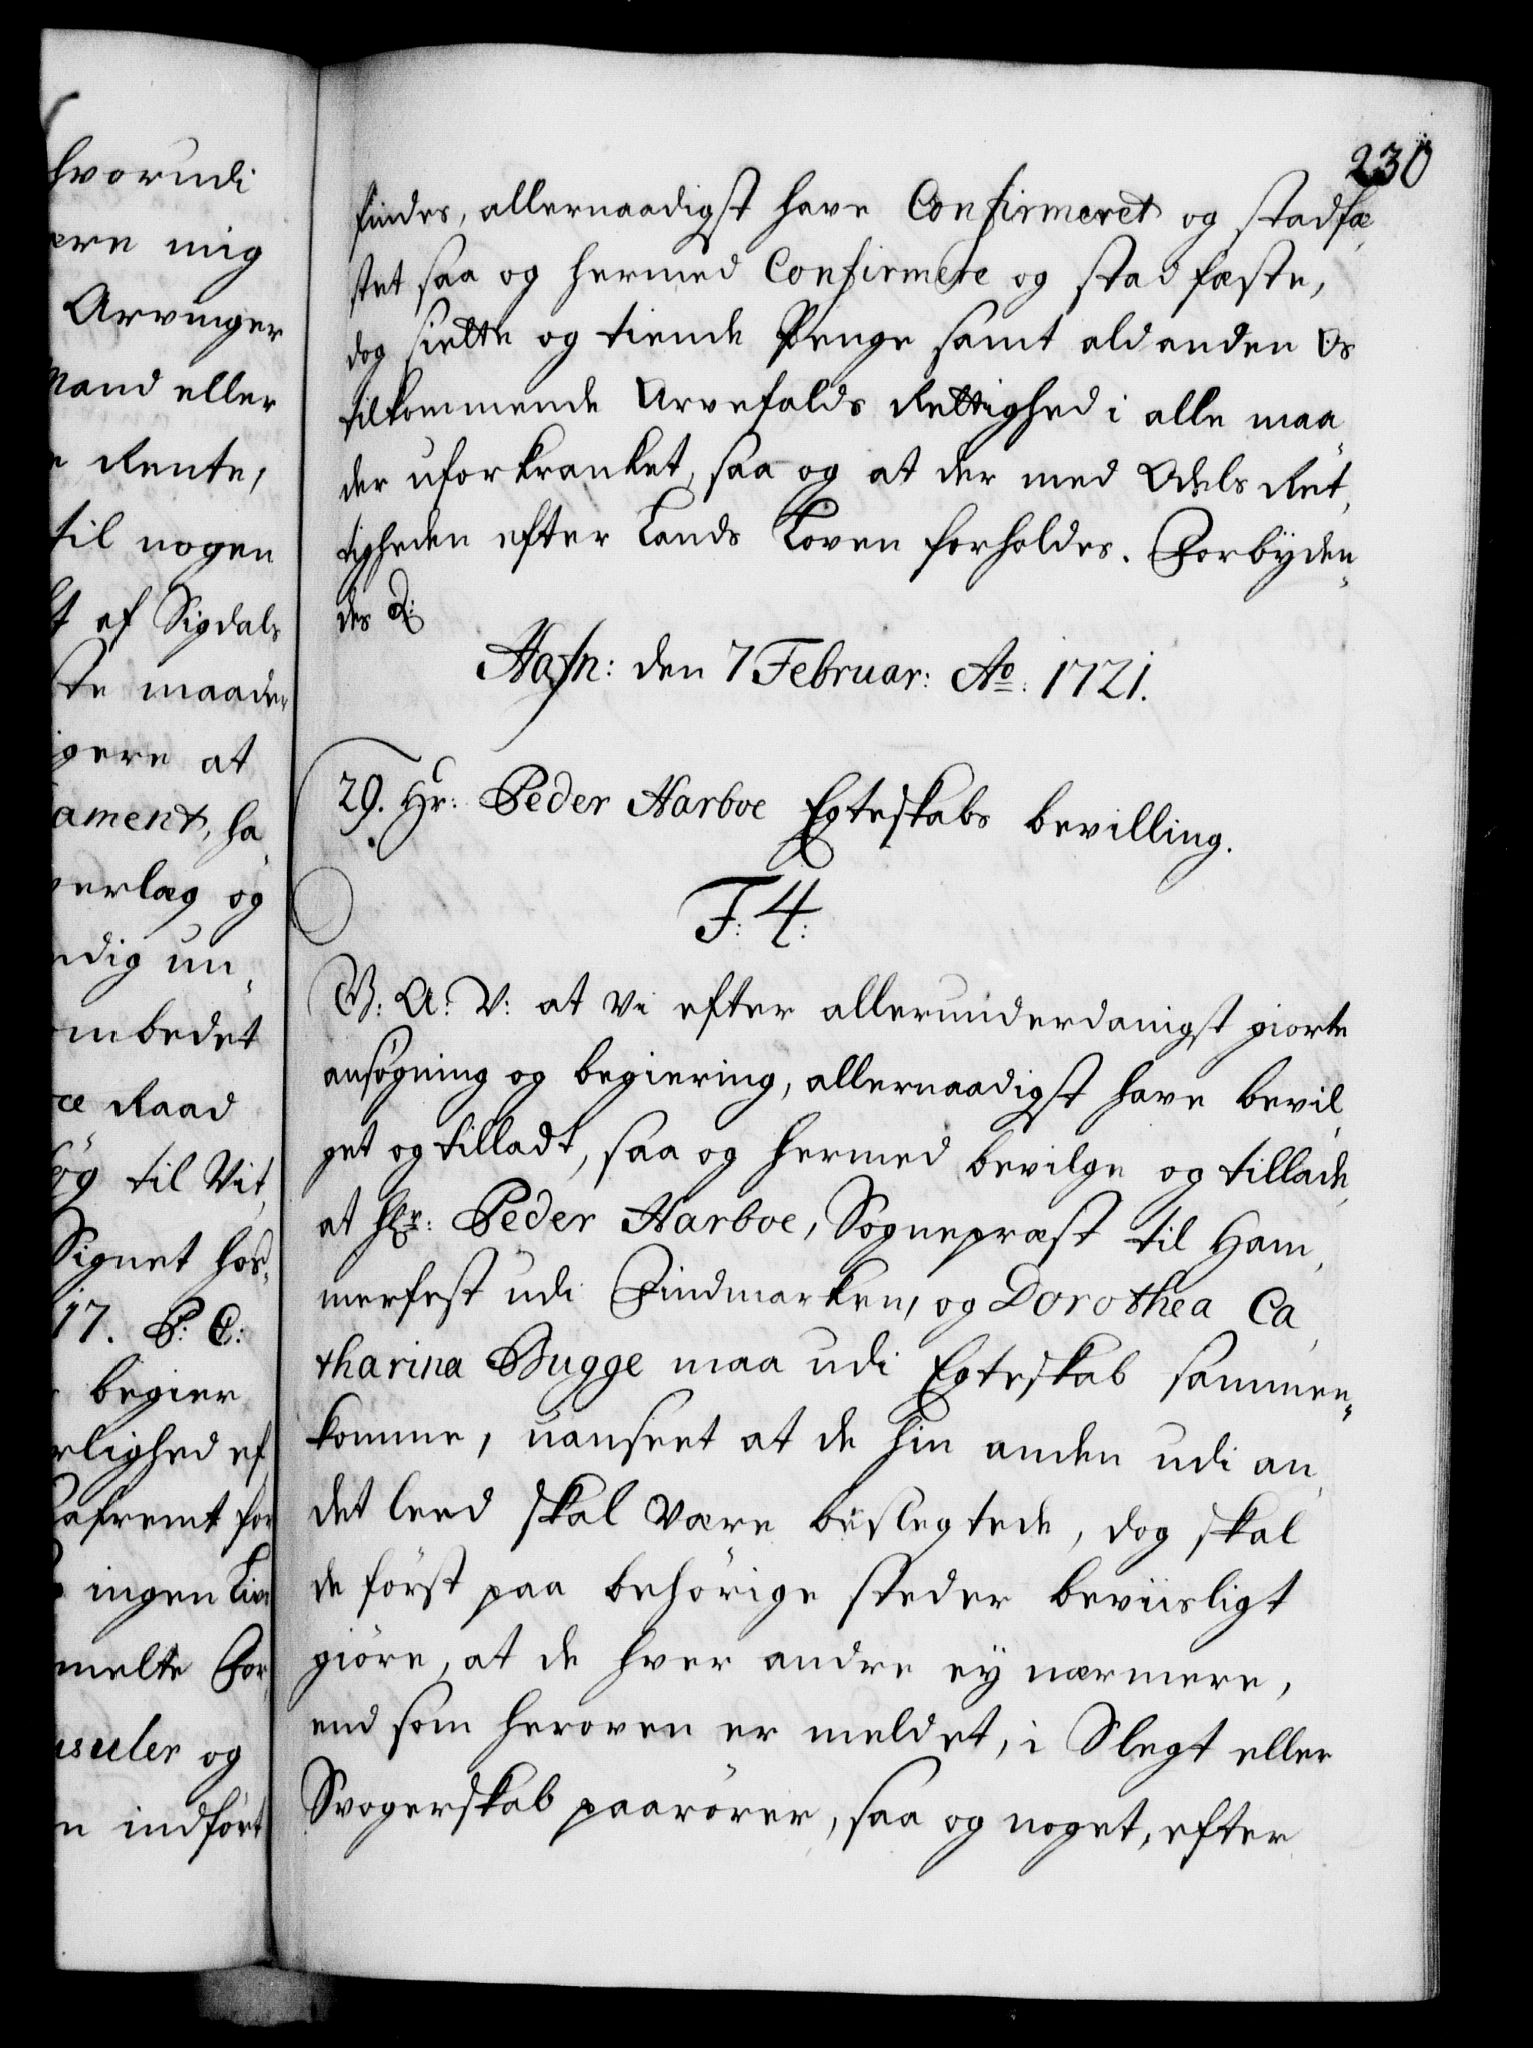 hvorudi
ere mig
Arvinger
Mand eller
e Rente,
til nogen
t af Sigdals
ste maader
igere at
ament, ha,
verlæg og
ndig un,
ombedet
ce Raad
øg til Vit,
Signet hos,
17. P: C:
begier
rlighed ef,
afremt for
ingen Liv
melte For,
usuler og
n indført
230
findes, allernaadigst have Confirmeret og stadfæ,
stet saa og hermed Confirmere og stadfæste,
dog siette og tiende Penge samt ald anden Os
tilkommende Arvefalds Rettighed i alle maa,
der uforkranket, saa og at der med Odels Ret,
tigheden efter Lands Loven forholdes. Forbÿden,
des &:
Hafn: den 7 Februar: Ao: 1721.
29. Hr: Peder Harboe Egteskabs bevilling.
F: 4:
G: A: V: at Vi efter allerunderdanigst giorte
ansøgning og begiering, allernaadigst have bevil,
get og tilladt, saa og hermed bevilge og tillade,
at Hr: Peder Harboe, Sognepræst til Ham,
merfest udi Findmarken, og Dorothea Ca,
tharina Bugge maa udi Egteskab sammen,
komme, uanseet at de hin anden udi an,
det leed skal være beslegtede, dog skal
de først paa behørige steder beviisligt
giøre, at de hver andre eÿ nærmere,
end som heroven er meldet, i Slegt eller
Svogerskab paarører, saa og noget, efter